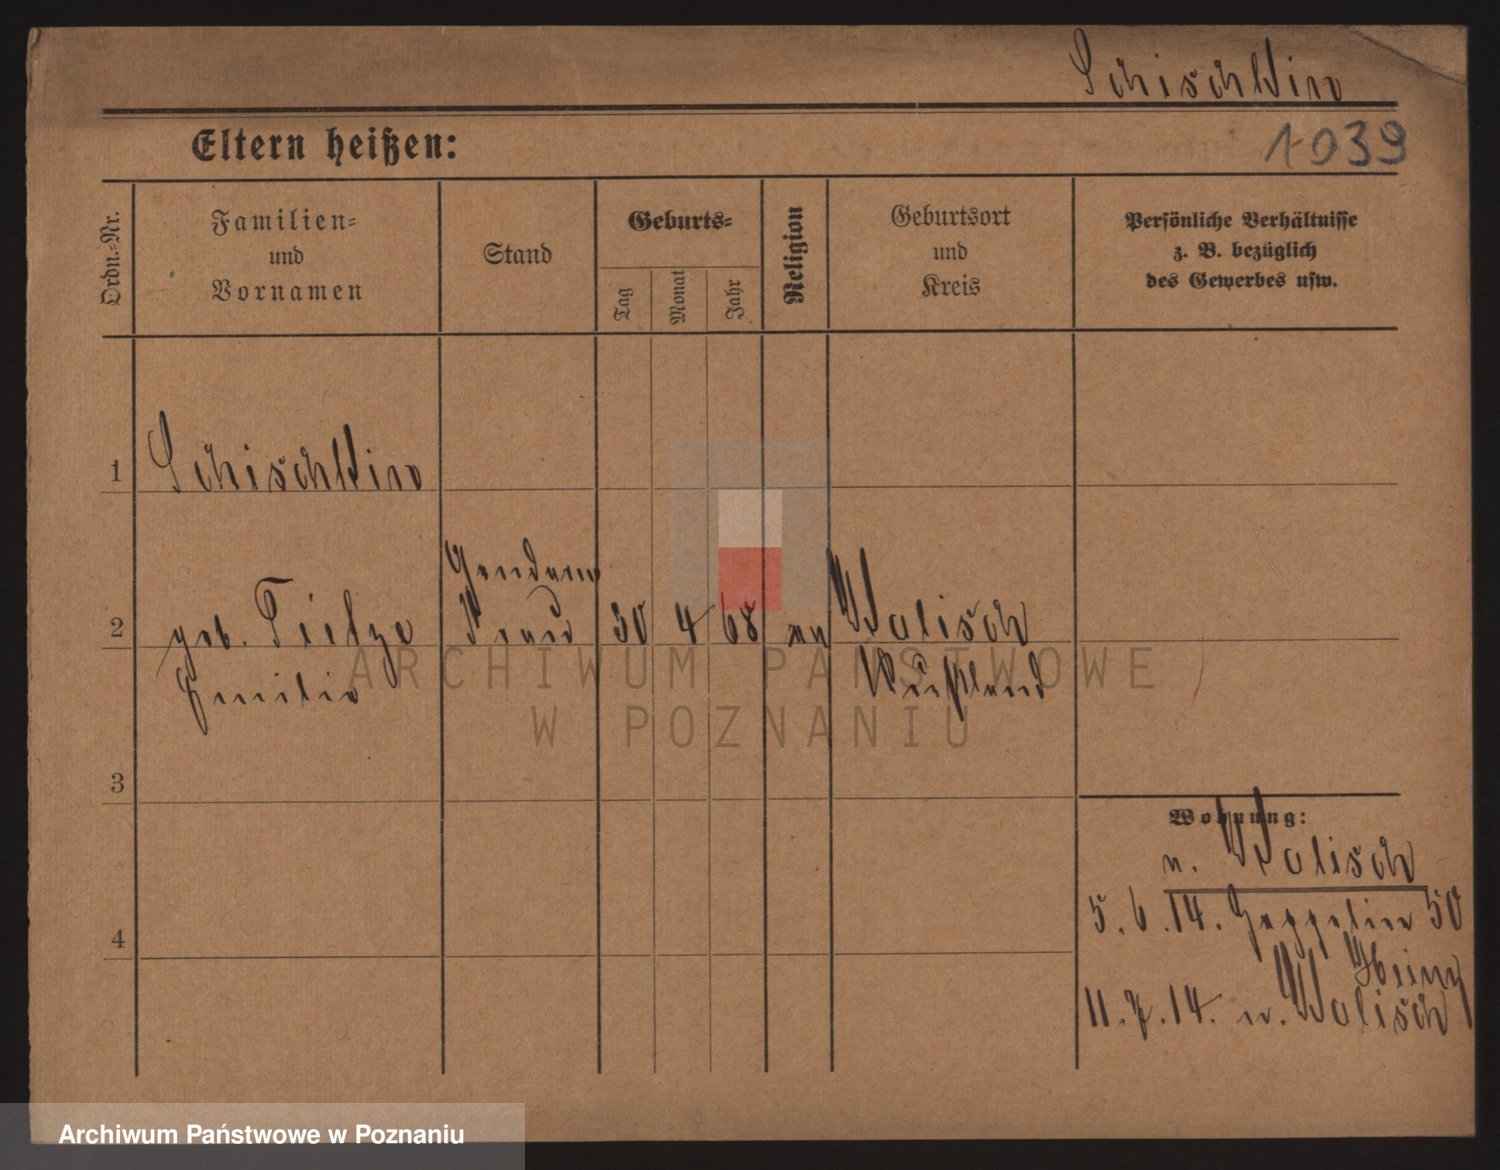 Schischkin
Eltern heißen:
1039
Ordn.-Nr.
Familien-
und
Vornamen
Stand
Geburts-
Tag
Monat
Jahr
Religion
Geburtsort
und
Kreis
Persönliche Verhältnisse
z. B. bezüglich
des Gewerbes usw.
1
Schischkin
2
geb. Tietze
Emilie
Gendarm
Frau
30
4
68
Wolisch
Rußland
3
4
Wohnung:
n. Wolisch
5. 6. 14. Zeppelin 50
Heinz
11. 7. 14. n. Wolisch
ARCHIWUM PAŃSTWOWE
W POZNANIU
Archiwum Państwowe w Poznaniu